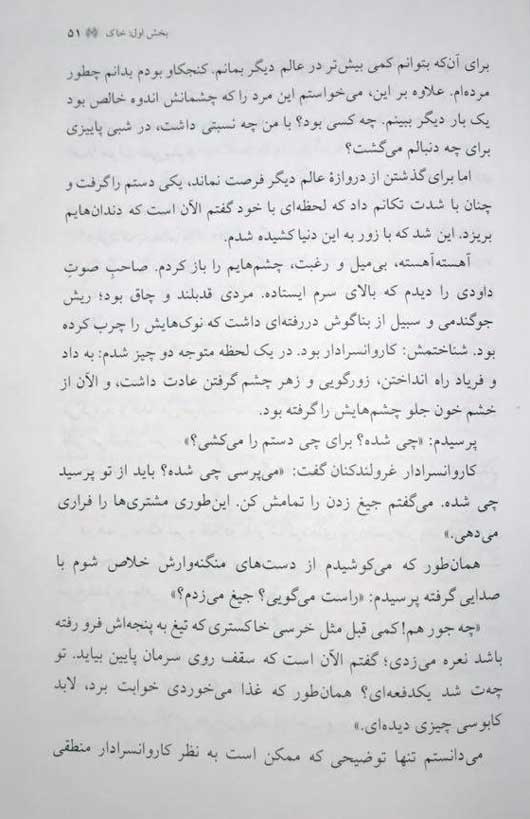 بخش اول: خاک ۵۱
برای آن‌که بتوانم کمی بیش‌تر در عالم دیگر بمانم. کنجکاو بودم بدانم چطور
مرده‌ام. علاوه بر این، می‌خواستم این مرد را که چشمانش اندوه خالص بود
یک بار دیگر ببینم. چه کسی بود؟ با من چه نسبتی داشت، در شبی پاییزی
برای چه دنبالم می‌گشت؟
اما برای گذشتن از دروازهٔ عالم دیگر فرصت نماند، یکی دستم را گرفت و
چنان با شدت تکانم داد که لحظه‌ای با خود گفتم الآن است که دندان‌هایم
بریزد. این شد که با زور به این دنیا کشیده شدم.
آهسته‌آهسته، بی‌میل و رغبت، چشم‌هایم را باز کردم. صاحبِ صوتِ
داودی را دیدم که بالای سرم ایستاده. مردی قدبلند و چاق بود؛ ریش
جوگندمی و سبیل از بناگوش دررفته‌ای داشت که نوک‌هایش را چرب کرده
بود. شناختمش: کاروانسرادار بود. در یک لحظه متوجه دو چیز شدم: به داد
و فریاد راه انداختن، زورگویی و زهر چشم گرفتن عادت داشت، و الآن از
خشم خون جلو چشم‌هایش را گرفته بود.
پرسیدم: «چی شده؟ برای چی دستم را می‌کشی؟»
کاروانسرادار غرولندکنان گفت: «می‌پرسی چی شده؟ باید از تو پرسید
چی شده. می‌گفتم جیغ زدن را تمامش کن. این‌طوری مشتری‌ها را فراری
می‌دهی.»
همان‌طور که می‌کوشیدم از دست‌های منگنه‌وارش خلاص شوم با
صدایی گرفته پرسیدم: «راست می‌گویی؟ جیغ می‌زدم؟»
«چه جور هم! کمی قبل مثل خرسی خاکستری که تیغ به پنجه‌اش فرو رفته
باشد نعره می‌زدی؛ گفتم الآن است که سقف روی سرمان پایین بیاید. تو
چه‌ت شد یکدفعه‌ای؟ همان‌طور که غذا می‌خوردی خوابت برد، لابد
کابوسی چیزی دیده‌ای.»
می‌دانستم تنها توضیحی که ممکن است به نظر کاروانسرادار منطقی